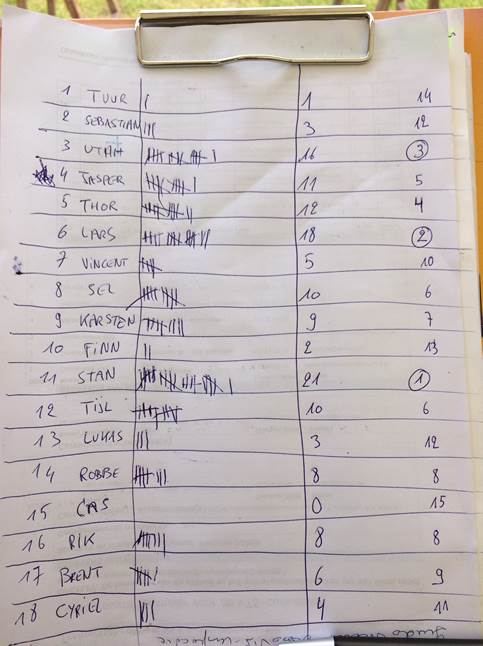 1 TUUR 1 14
2 SEBASTIAN 3 12
3 UTAH 16 3
4 JASPER 11 5
5 THOR 12 4
6 LARS 18 2
7 VINCENT 5 10
8 SEL 10 6
9 KARSTEN 9 7
10 FINN 2 13
11 STAN 21 1
12 TIJL 10 6
13 LUKAS 3 12
14 ROBBE 8 8
15 CAS 0 15
16 RIK 8 8
17 BRENT 6 9
18 CYRIEL 4 11